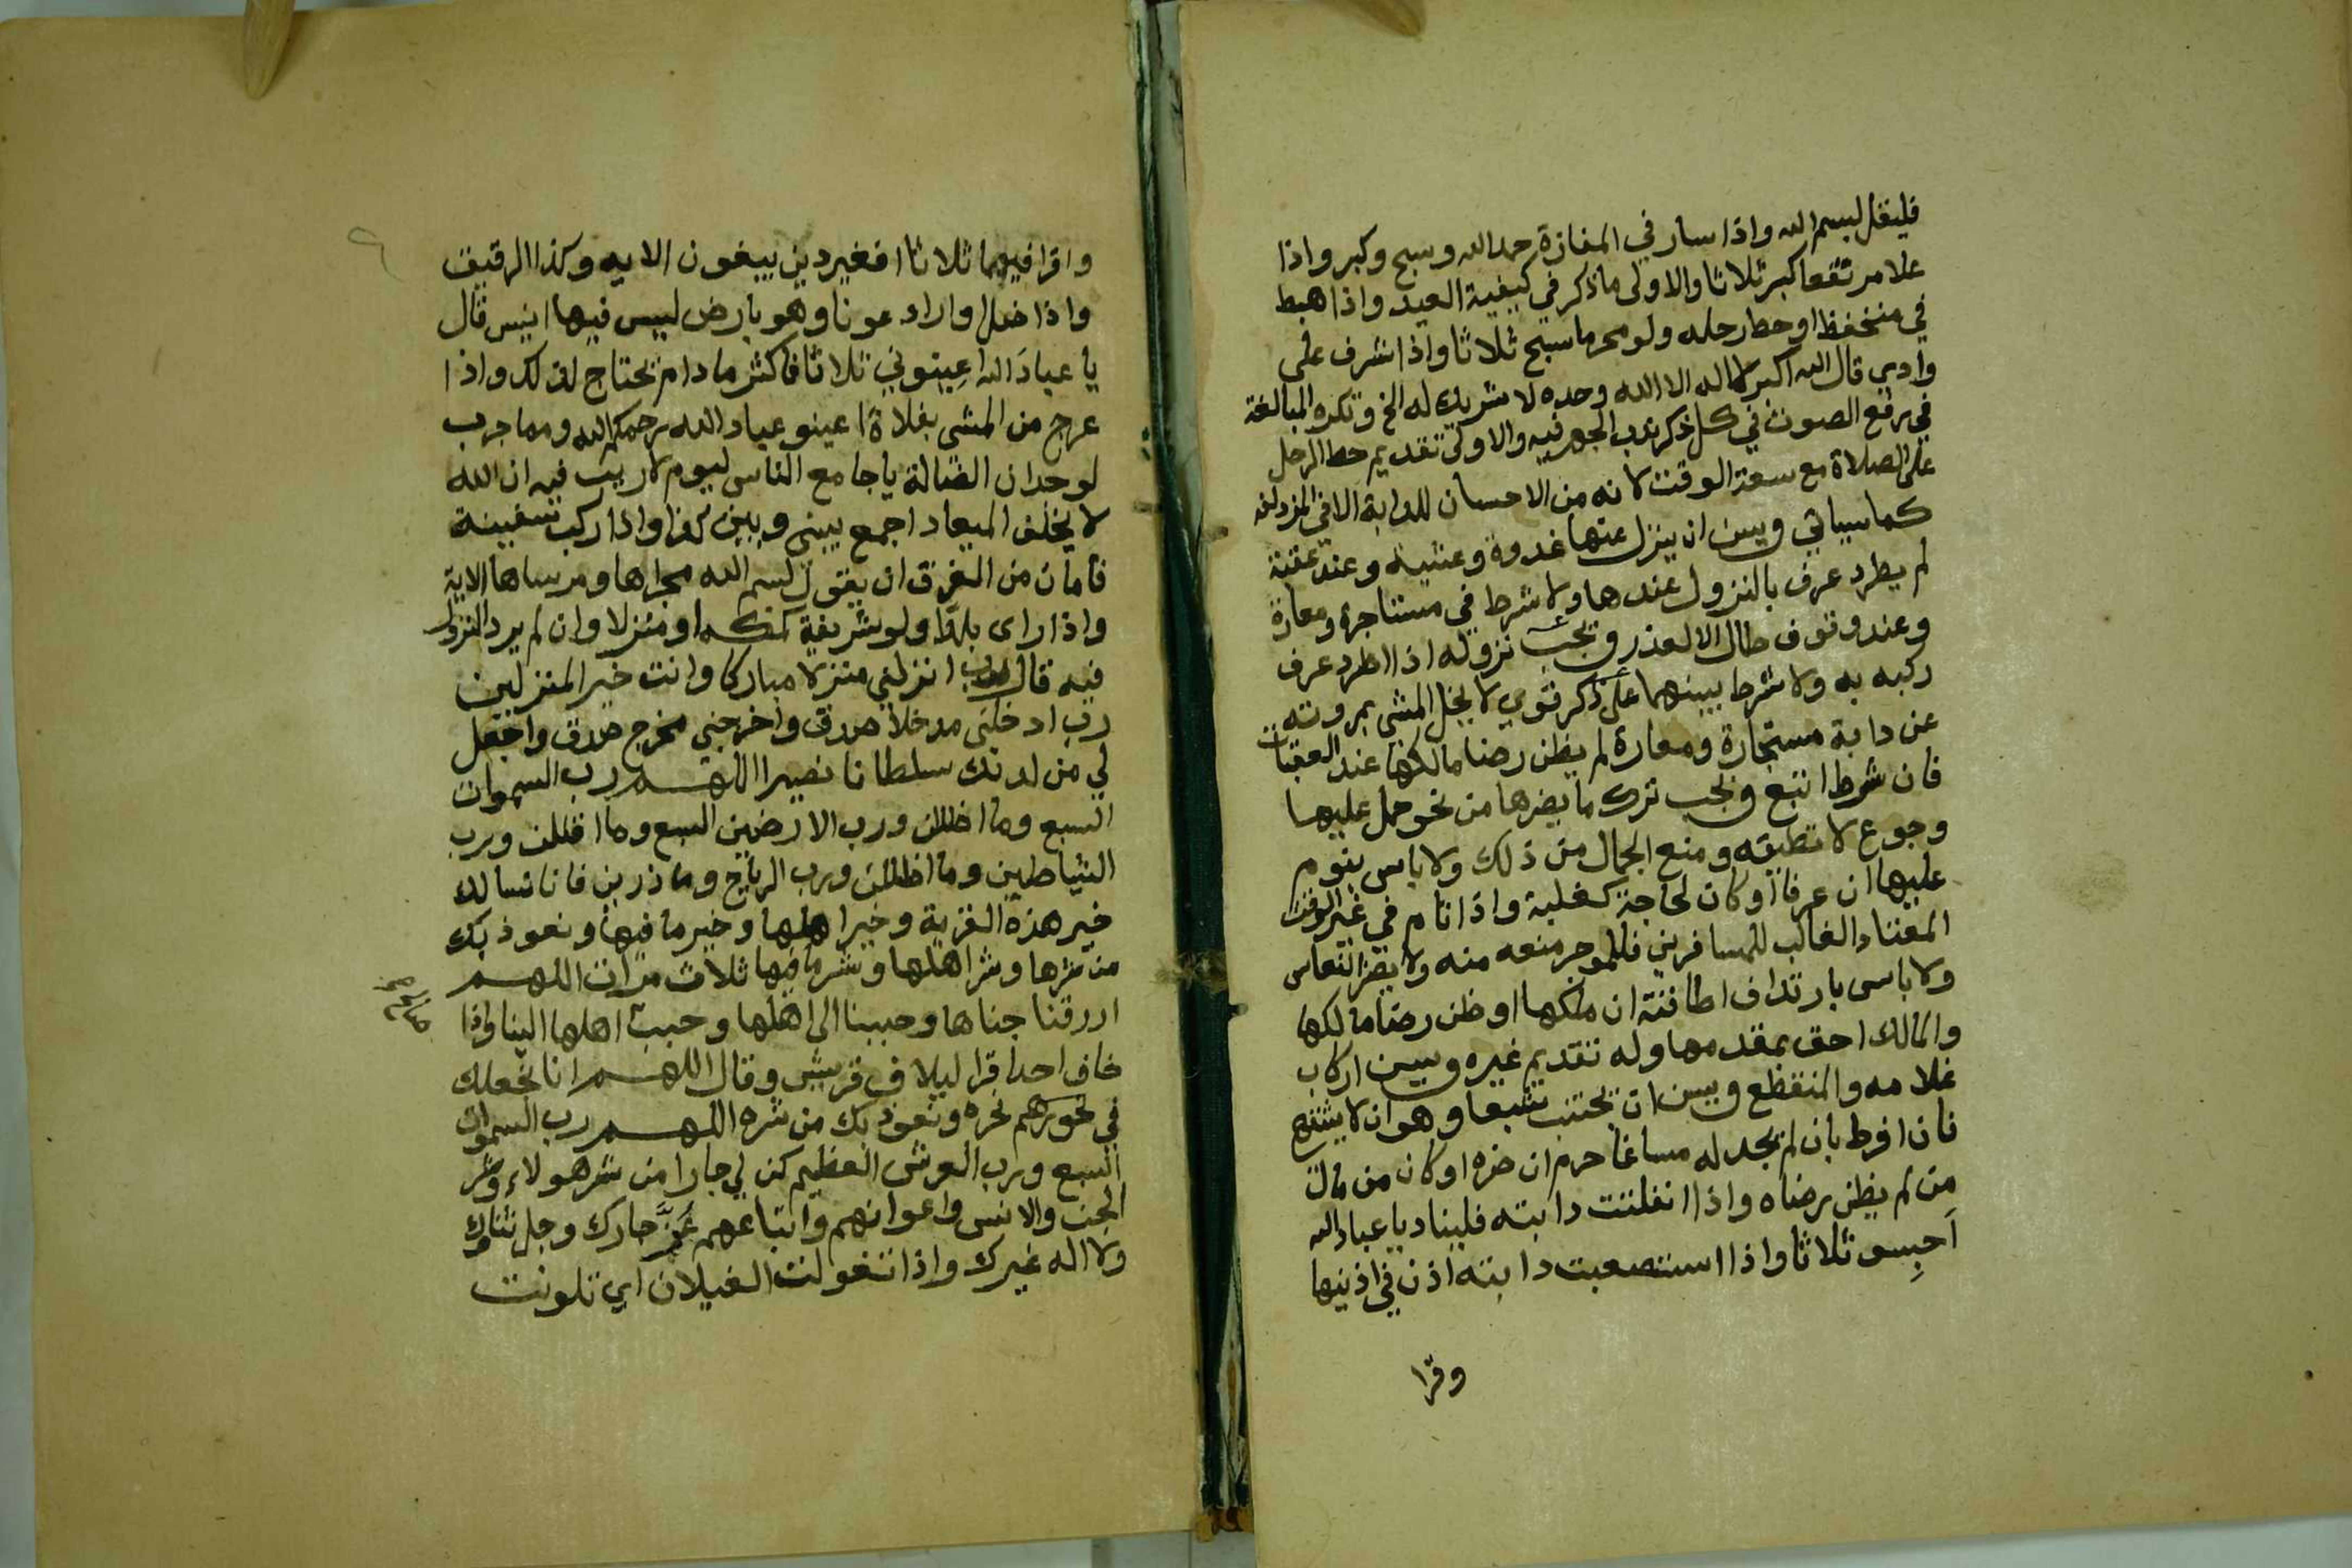 فليقل بسم الله واذا سار في المفازة حمد الله وسبح وكبر واذا
علا مرتفعا كبر ثلاثا والاولى ما ذكر في كيفية العيد واذا هبط
في منخفظ او حط رحله ولو محرما سبح ثلاثا واذا اشرف على
وادي قال الله اكبر لا اله الا الله وحده لا شريك له الخ وتكره المبالغة
في رفع الصوت في كل ذكر ندب الجهر فيه والاولى تقديم حط الرحل
على الصلاة مع سعة الوقت لانه من الاحسان للدابة الا في المزدلفه
كما سياتي ويسن ان ينزل عنها غدوة وعشية وعند عقبة
لم يطرد عرف بالنزول عندها ولا شرط في مستاجرة ومعارة
وعند وقوف طال الا لعذر ويجب نزوله اذا اطرد عرف
ركبه به ولا شرط بينهما على ذكر قوي لا يخل المشي بمروته
عن دابة مستجارة ومعارة لم يظن رضا مالكها عند العقبات
فان شرط اتبع ويجب ترك ما يضرها من نحو حمل عليها
وجوع لا تطيقه ومنع الجمال من ذلك ولا باس بنوم
عليها ان عرفا او كان لحاجة كغلبة واذا نام في غير الوقت
المعتاد الغالب للمسافرين فللموجر منعه منه ولا يضر النعاس
ولا باس بارتداف اطاقته ان ملكها او ظن رضا مالكها
والمالك احق بمقدمها وله تقديم غيره ويسن اركاب
غلامه والمنقطع ويسن ان يجتنب شبعا وهو ان لا يشتهي
فان افرط بان لم يجد له مساغا حرم ان ضره او كان من مال
من لم يظن رضاه واذا انفلتت دابته فليناد يا عباد الله
احبسو ثلاثا واذا استصعبت دابته اذن في اذنيها
وقرا
واقرا فيهما ثلاثا افغير دين يبغون الايه وكذا الرقيق
واذا ضل او اراد عونا وهو بارض ليس فيها انيس قال
يا عباد الله اعينوني ثلاثا فاكثر ما دام يحتاج لذلك واذا
عرج من المشي بفلاة اعينو عباد الله رحمكم الله ومما جرب
لوحدان الضالة يا جامع الناس ليوم لا ريب فيه ان الله
لا يخلف الميعاد اجمع بيني وبين كذا واذا ركب سفينة
فامان من الغرق ان يقول بسم الله مجراها ومرساها الاية
واذا راى بلدا ولو شريفة كمكه او منزلا وان لم يرد النزول
فيه قال رب انزلني منزلا مباركا وانت خير المنزلين
رب ادخلني مدخلا صدق واخرجني مخرج صدق واجعل
لي من لدنك سلطانا نصيرا اللهم رب السموات
السبع وما اظللن ورب الارضين السبع وما اقللن ورب
الشياطين وما اظللن ورب الرياح وما ذرين فانا نسالك
خير هذه القرية وخير اهلها وخير ما فيها ونعوذ بك
من شرها وشر اهلها وشر ما فيها ثلاث مرات اللهم
ارزقنا جناها وحببنا الى اهلها وحبب اهلها الينا واذا
خاف احدا قرا ليلاف قريش وقال اللهم انا نجعلك
في نحورهم نحره ونعوذ بك من شره اللهم رب السموات
السبع ورب العرش العظيم كن لي جارا من شر هولاء وشر
الجن والانس واعوانهم واتباعهم عز جارك وجل ثناوك
ولا اله غيرك واذا تغولت الغيلان اي تلونت